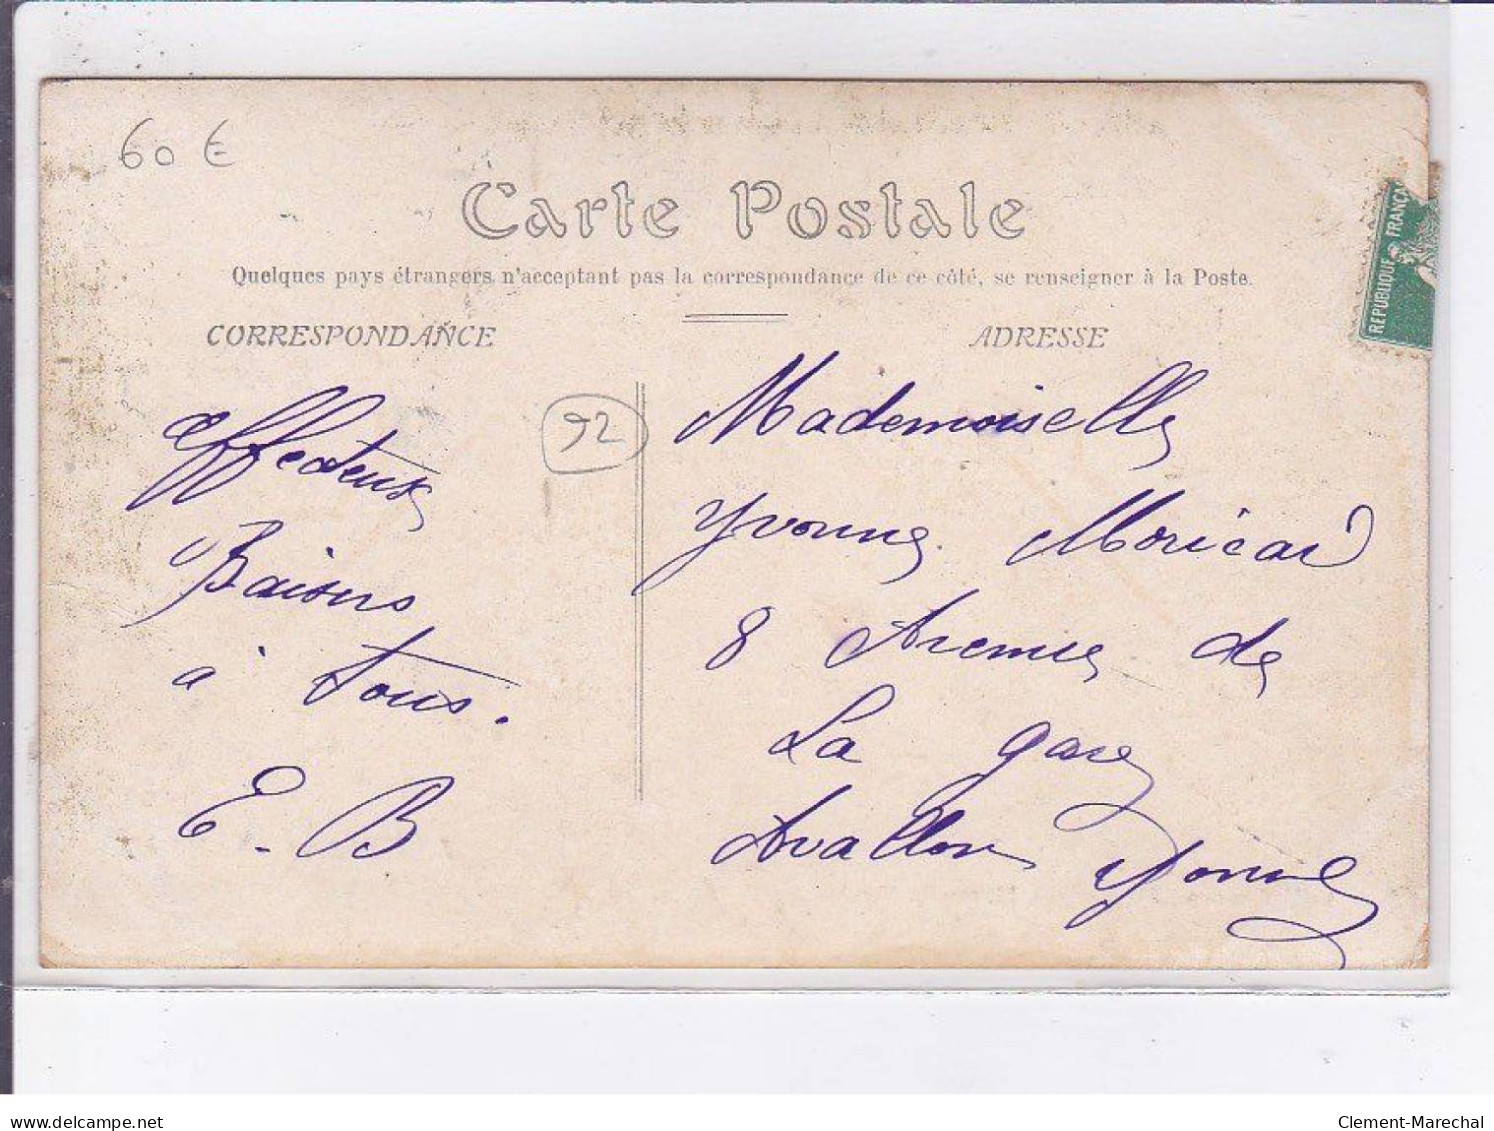 60 €
Carte Postale
Quelques pays étrangers n'acceptant pas la correspondance de ce côté, se renseigner à la Poste.
CORRESPONDANCE
ADRESSE
REPUBLIQUE FRANCA
92
affectueux
Baisers
à tous.
E. B
Mademoiselle
Yvonne Moricard
8 Avenue de
La gare
Avallon Yonne
delcampe.net
Clement-Marechal